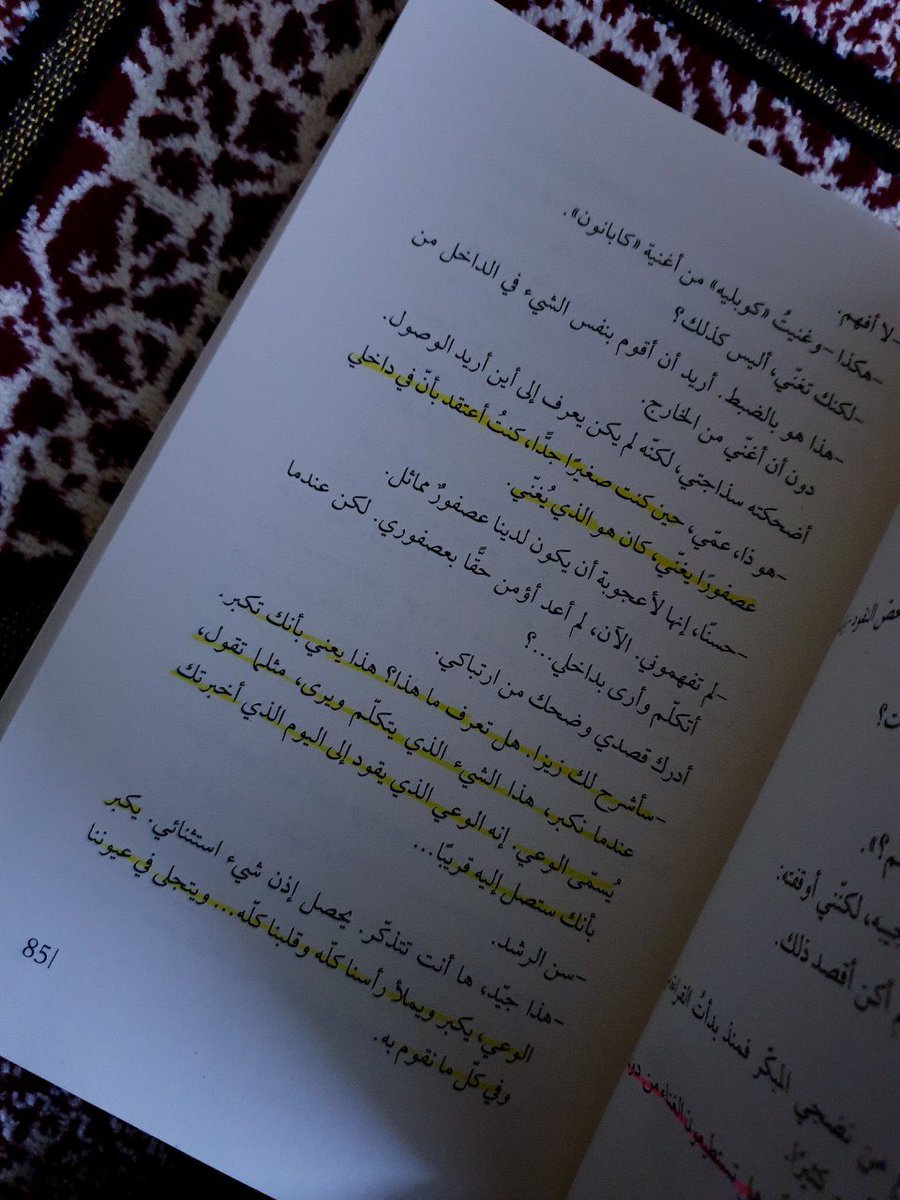 -لا أفهم.
-هكذا -وغنيتُ «كوبليه» من أغنية «كابانون».
-لكنك تغنّي، أليس كذلك؟
-هذا هو بالضبط. أريد أن أقوم بنفس الشيء في الداخل من
دون أن أغنّي من الخارج.
أضحكته سذاجتي، لكنّه لم يكن يعرف إلى أين أريد الوصول.
-هو ذا، عمّي، حين كنت صغيرًا جدًّا، كنتُ أعتقد بأنّ في داخلي
عصفورًا يغنّي، كان هو الذي يُغنّي.
-حسنًا، إنها لأعجوبة أن يكون لدينا عصفورٌ مماثل.
-لم تفهموني. الآن، لم أعد أؤمن حقًّا بعصفوري. لكن عندما
أتكلّم وأرى بداخلي...؟
أدرك قصدي وضحك من ارتباكي.
-سأشرح لك زيزا. هل تعرف ما هذا؟ هذا يعني بأنك تكبر.
عندما نكبر، هذا الشيء الذي يتكلّم ويرى، مثلما تقول،
يُسمّى الوعي. إنه الوعي الذي يقود إلى اليوم الذي أخبرتك
بأنك ستصل إليه قريبًا...
-سن الرشد.
-هذا جيّد، ها أنت تتذكّر. يحصل إذن شيء استثنائي. يكبر
الوعي، يكبر ويملأ رأسنا كلّه وقلبنا كلّه... ويتجلى في عيوننا
وفي كلّ ما نقوم به.
85/
لكنّني أوقفته.
أكن أقصد ذلك.
المبكّر فمنذ بدأتُ